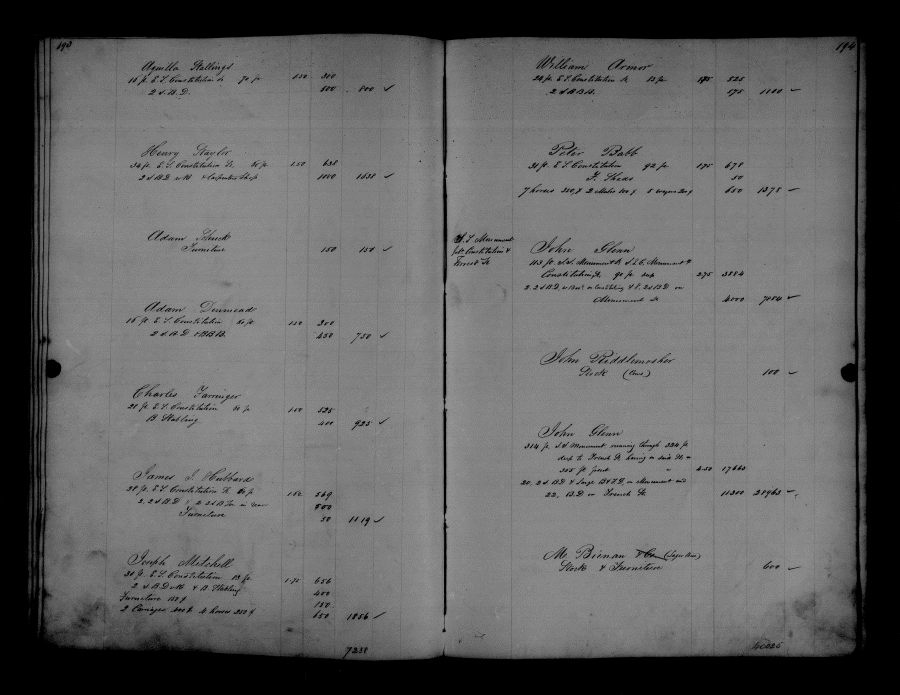 193
Aquilla Stallings
16 ft. E. S. Constitution St 70 ft 150 200
2 d. B. D. 600 800 ✓
Henry Naylor
34 ft. E. S. Constitution St. 80 ft 150 638
2 d B D & Carpenters Shop 1000 1638 ✓
Adam
Furniture 150 150 ✓
Adam Denmead
16 ft. E. S. Constitution 80 ft 150 300
2 d B D & BB 450 750 ✓
Charles Farringer
21 ft. E. S. Constitution ft 150 525
B. Stabling 400 925 ✓
James J. Hubbard
28 ft. E. S. Constitution St 80 ft 569
2. 2 d B D 2. 2 d B in rear 500
Furniture 50 1119 ✓
Joseph Mitchell
30 ft. E. S. Constitution ft 656
2 d B D & B Stabling 400
Furniture 150 $ 150
2 Carriages 400 $ 4 horses 250 $ 650 1856 ✓
7238
194
William Armor
24 ft. E. S. Constitution St. ft 175 525
2 d B BB. 575 1100 ✓
Peter Babb
31 ft. E. S. Constitution 92 ft 175 678
F. Sheds 50
7 horses 350 $ 2 100 $ 5 wagons 200 $ 650 1378 ✓
S Monument
bet. Constitution &
Forrest St
John Glenn
113 ft. S. S. Monument St. S. E. C. Monument &
Constitution St. 90 ft deep 275 3884
2. 2 d B D on Constitution & 2 d B D on
Monument St 4000 7084 ✓
John Riddlemosher
Stock (Cows) 100 –
John Glenn
314 ft. S. S Monument running through 324 ft
deep to French St. having on said St. a
355 ft front 450 17663
20. 2 d B D & Large B D, on Monument and
22. B D on French St 11300 28963 –
Mc Bienan & Co
Stock & Furniture 600 –
40025